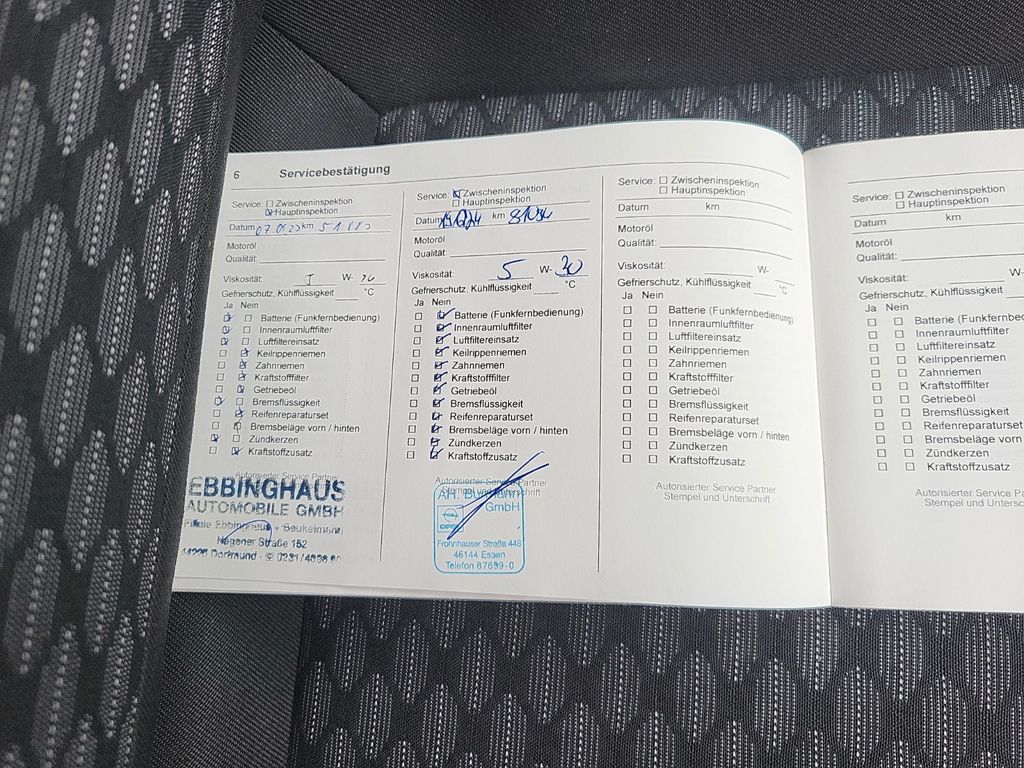 6 Servicebestätigung
Service: Zwischeninspektion
Hauptinspektion
Datum km
Motoröl
Qualität:
Viskosität: W-
Gefrierschutz, Kühlflüssigkeit °C
Ja Nein
Batterie (Funkfernbedienung)
Innenraumluftfilter
Luftfiltereinsatz
Keilrippenriemen
Zahnriemen
Kraftstofffilter
Getriebeöl
Bremsflüssigkeit
Reifenreparaturset
Bremsbeläge vorn / hinten
Zündkerzen
Kraftstoffzusatz
Autorisierter Service Partner
EBBINGHAUS
AUTOMOBILE GMBH
Hagener Straße 152
Dortmund
Service: Zwischeninspektion
Hauptinspektion
Datum km
Motoröl
Qualität:
Viskosität: 5 W- 30
Gefrierschutz, Kühlflüssigkeit °C
Ja Nein
Batterie (Funkfernbedienung)
Innenraumluftfilter
Luftfiltereinsatz
Keilrippenriemen
Zahnriemen
Kraftstofffilter
Getriebeöl
Bremsflüssigkeit
Reifenreparaturset
Bremsbeläge vorn / hinten
Zündkerzen
Kraftstoffzusatz
Autorisierter Service Partner
Stempel und Unterschrift
AH.
GmbH
Frohnhauser Straße 448
45144 Essen
Telefon 87699-0
Service: Zwischeninspektion
Hauptinspektion
Datum km
Motoröl
Qualität:
Viskosität: W-
Gefrierschutz, Kühlflüssigkeit °C
Ja Nein
Batterie (Funkfernbedienung)
Innenraumluftfilter
Luftfiltereinsatz
Keilrippenriemen
Zahnriemen
Kraftstofffilter
Getriebeöl
Bremsflüssigkeit
Reifenreparaturset
Bremsbeläge vorn / hinten
Zündkerzen
Kraftstoffzusatz
Autorisierter Service Partner
Stempel und Unterschrift
Service: Zwischeninspektion
Hauptinspektion
Datum km
Motoröl
Qualität:
Viskosität: W-
Gefrierschutz, Kühlflüssigkeit
Ja Nein
Batterie (Funkfernbed
Innenraumluftfilter
Luftfiltereinsatz
Keilrippenriemen
Zahnriemen
Kraftstofffilter
Getriebeöl
Bremsflüssigkeit
Reifenreparaturset
Bremsbeläge vorn
Zündkerzen
Kraftstoffzusatz
Autorisierter Service Pa
Stempel und Unterschr